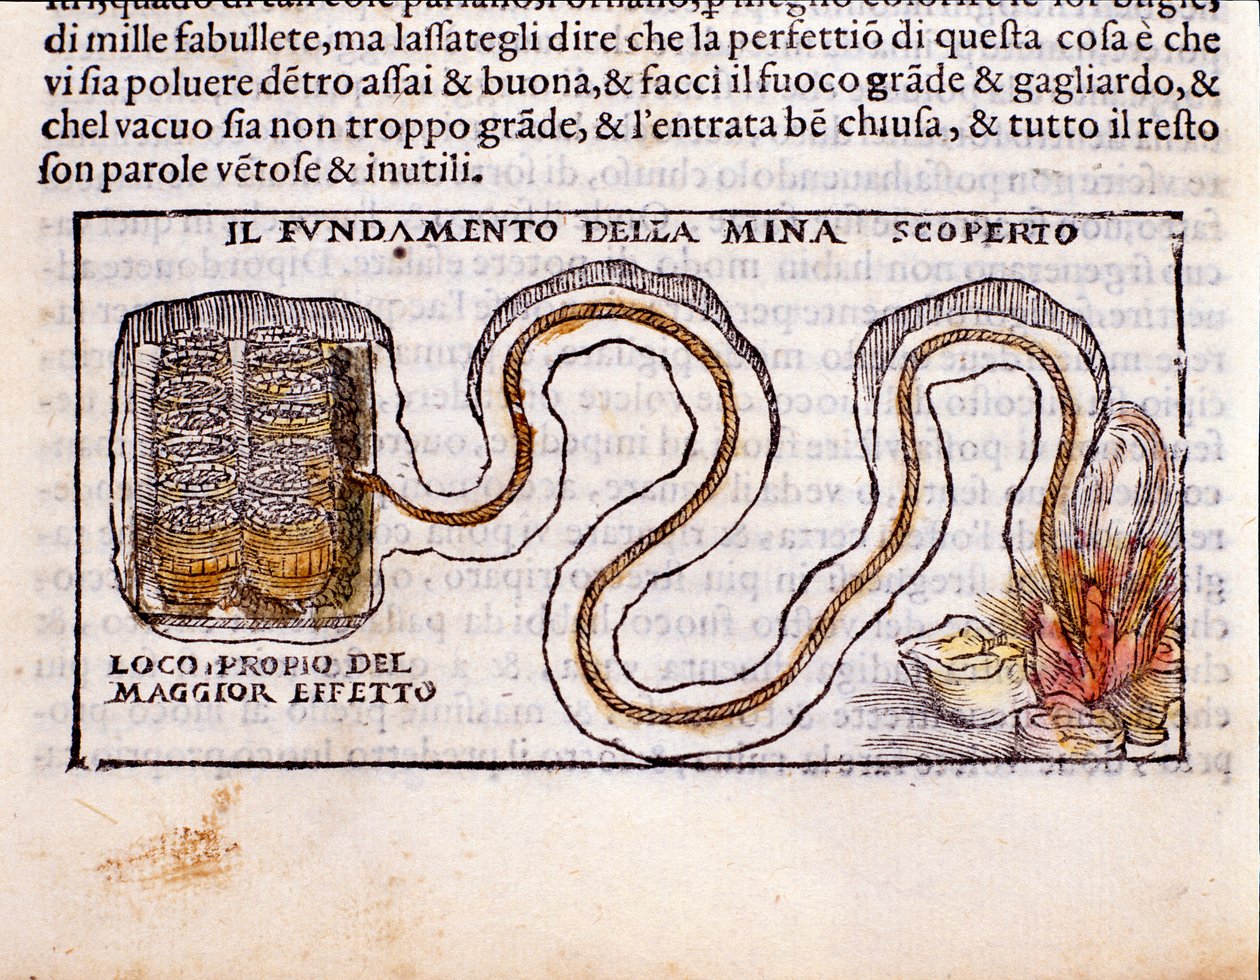 di mille fabullete,ma laſſategli dire che la perfettiõ di queſta coſa è che
vi ſia poluere dẽtro aſſai & buona,& facci il fuoco grãde & gagliardo,&
chel vacuo ſia non troppo grãde, & l'entrata bẽ chiuſa, & tutto il reſto
ſon parole vẽtoſe & inutili.
IL FVNDAMENTO DELLA MINA SCOPERTO
LOCO PROPIO DEL
MAGGIOR EFFETTO